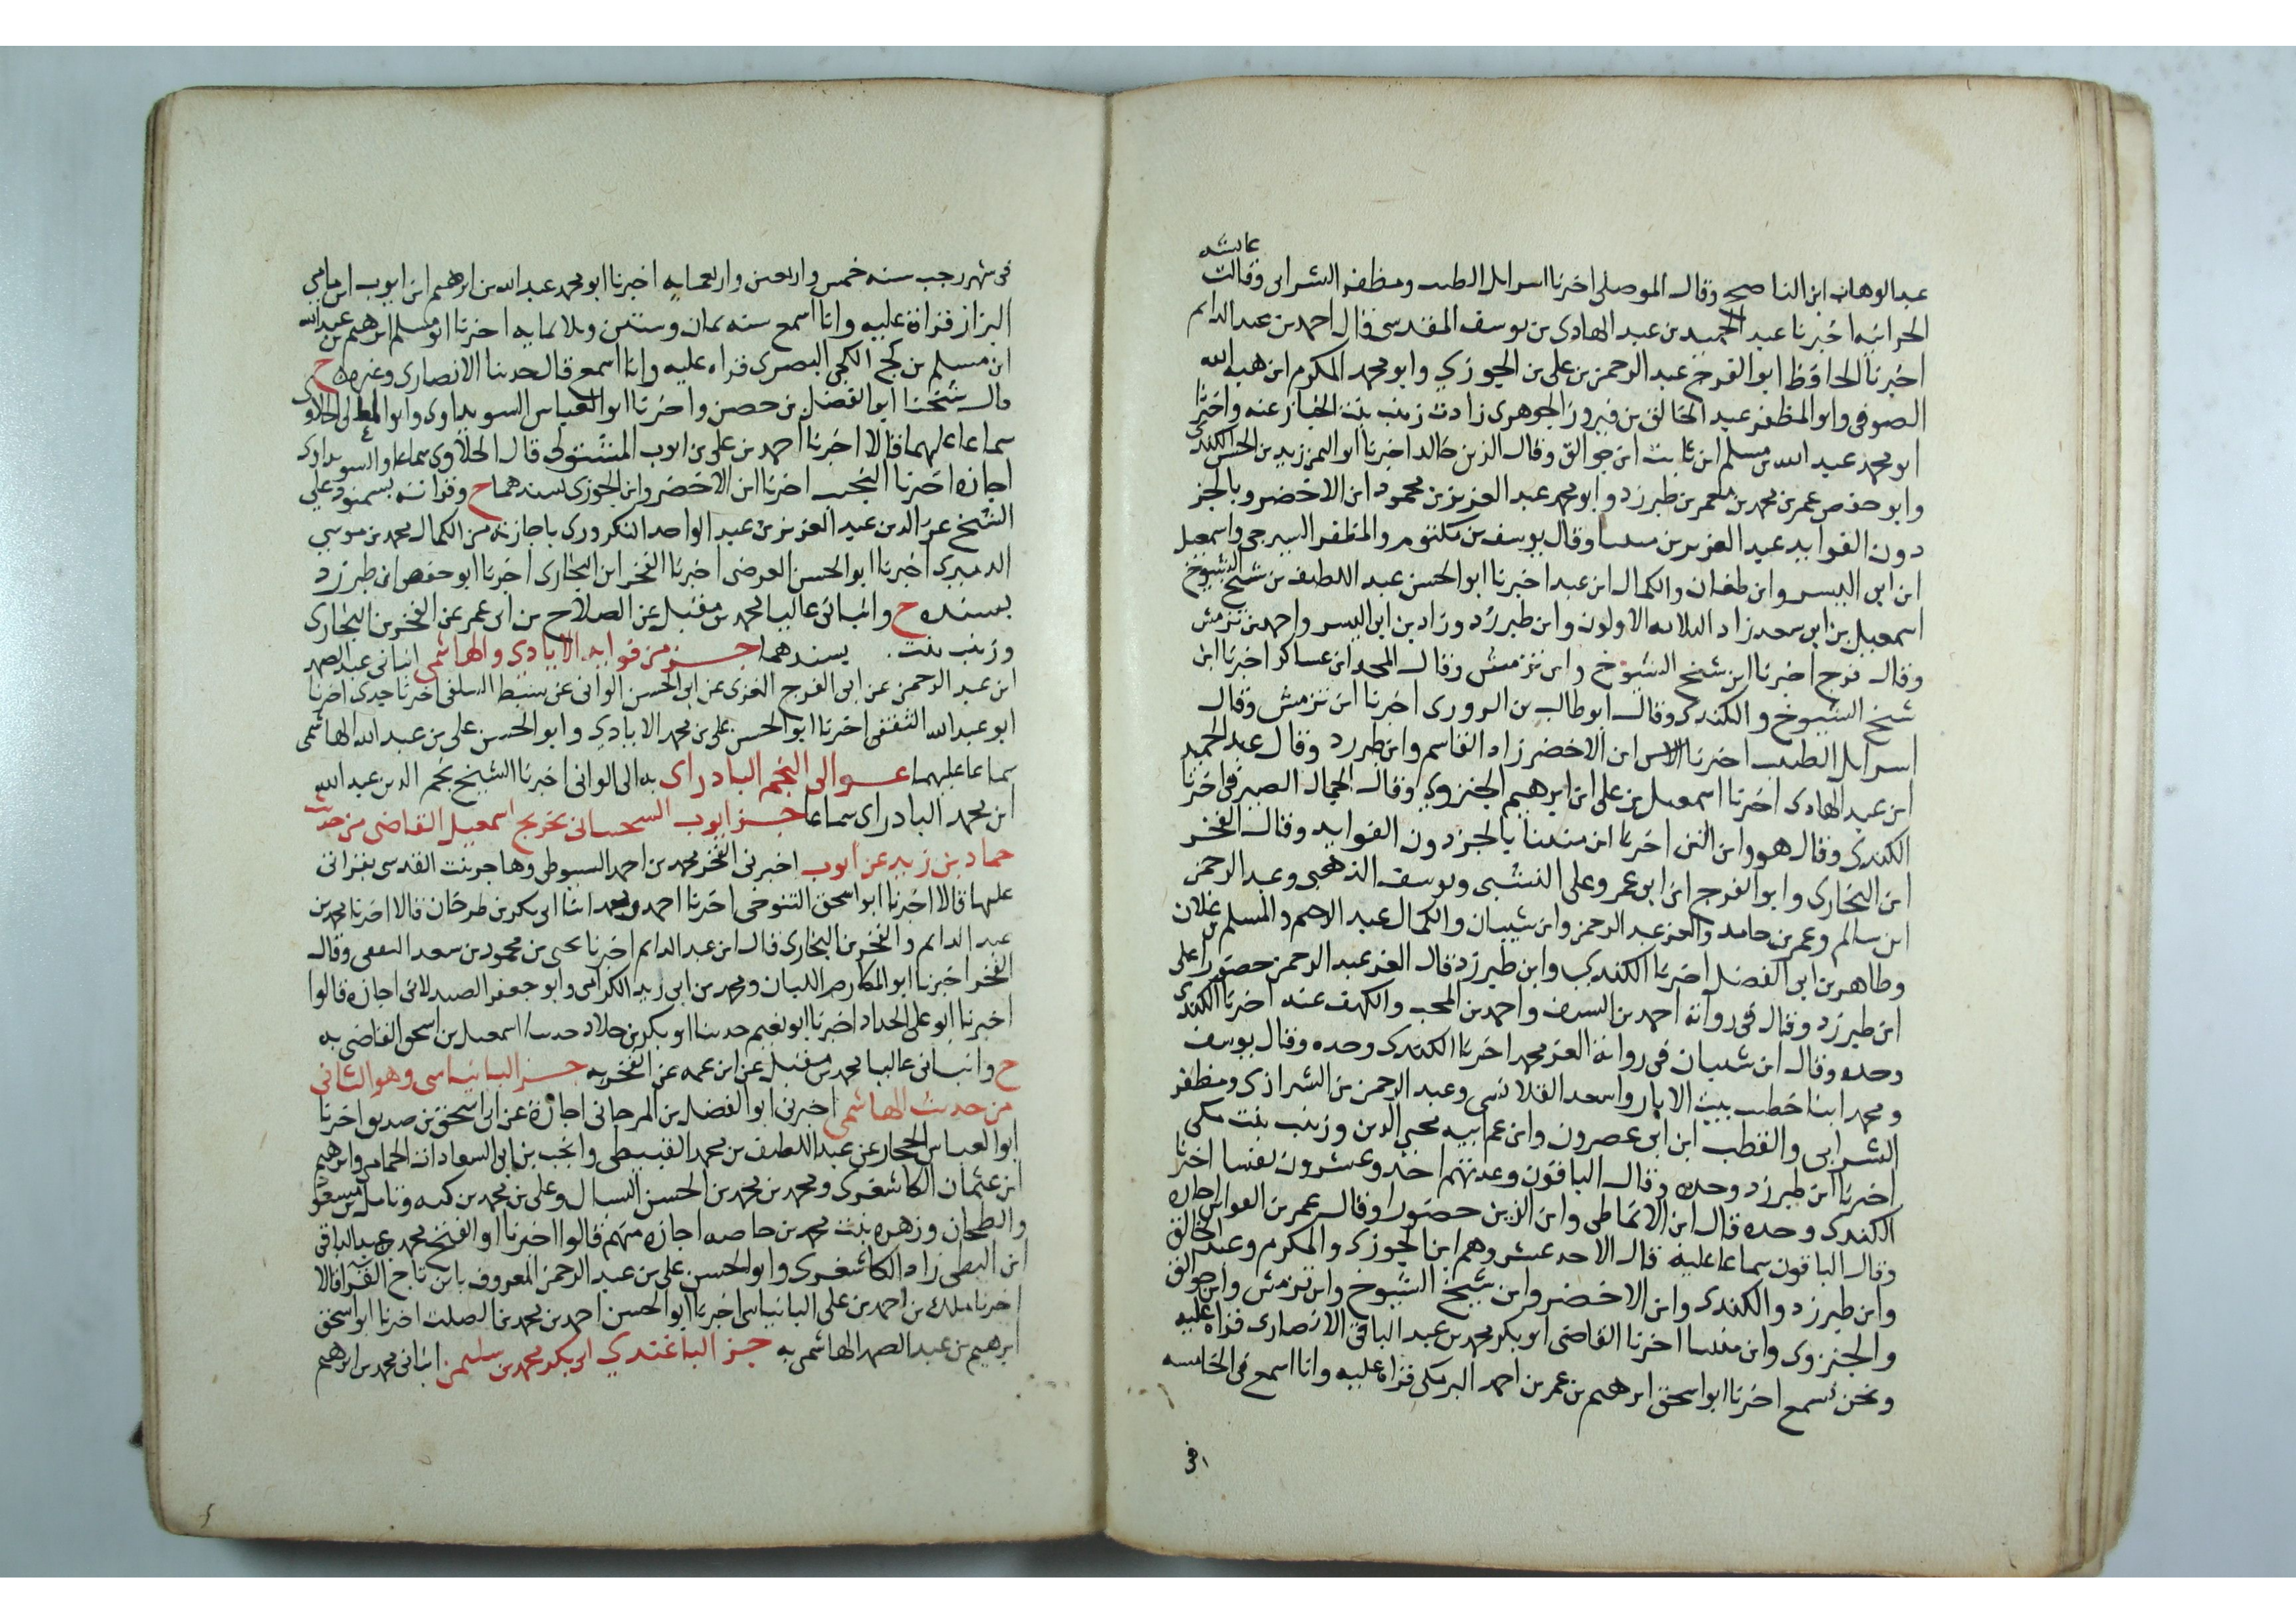 عائشة
عبد الوهاب ابن الناصح وقال الموصلي اخبرنا اسرايل الطبيب ومظفر الشرابي وقالت
الحرانيه اخبرنا عبد الحميد بن عبد الهادي بن يوسف المقدسي قال احمد بن عبد الدايم
اخبرنا الحافظ ابو الفرج عبد الرحمن بن علي بن الجوزي وابو محمد المكرم ابن هبه الله
الصوفي وابو المظفر عبد الخالق بن فيروز الجوهري زادت زينب بنت الخباز عنه واخبرنا
ابو محمد عبد الله بن مسلم ابن ثابت ابن جوالق وقال الزين خالد اخبرنا ابو اليمن زيد بن الحسن الكندي
وابو حفص عمر بن محمد بن معمر بن طبرزد وابو محمد عبد العزيز بن محمود ابن الاخضر وبالجز
دون الفوايد عبد العزيز بن منينا وقال يوسف بن مكتوم والمظفر السيرجي واسمعيل
ابن ابي اليسر وابن طغان والكمال ابن عبد اخبرنا ابو الحسن عبد اللطيف بن شيخ الشيوخ
اسمعيل بن ابي سعد زاد الثلاثه الاولون وابن طبرزد وزاد بن ابي اليسر واحمد بن تزمش
وقال فرج اخبرنا ابن شيخ الشيوخ وابن تزمش وقال المجد ابن عساكر اخبرنا ابن
شيخ الشيوخ والكندي وقال ابو طالب بن السروري اخبرنا ابن تزمش وقال
اسرايل الطبيب اخبرنا ابن الاخضر زاد القاسم وابن طبرزد وقال عبد الحميد
ابن عبد الهادي اخبرنا اسمعيل بن علي ابن ابرهيم الجنزوي وقال الجمال الصيرفي اخبرنا
الكندي وقال هو وابن الزين اخبرنا ابن منينا بالجز دون الفوايد وقال الفخر
ابن البخاري وابو الفرج ابن ابي عمر وعلي النشبي ويوسف الذهبي وعبد الرحمن
ابن سالم وعمر بن حامد والعز عبد الرحمن وابن شيبان والكمال عبد الرحيم والمسلم بن علان
وطاهر بن ابي الفضل اخبرنا الكندي وابن طبرزد قال العز عبد الرحمن حضورا علي
ابن طبرزد وقال في روايه احمد بن السيف واحمد بن المحب والكهف عنه اخبرنا الكندي
وحده وقال ابن شيبان في روايه العز محمد اخبرنا الكندي وحده وقال يوسف
ومحمد ابنا خطيب بيت الابار واسعد القلانسي وعبد الرحمن بن الشيرازي ومظفر
الشرابي والقطب ابن ابي عصرون وابن عم ابيه محيي الدين وزينب بنت مكي
اخبرنا ابن طبرزد وحده وقال الباقون وعدتهم احد وعشرون نفسا اخبرنا
الكندي وحده قال ابن الانماطي وابن الزين حضورا وقال عمر بن القواس اجازه
وقال الباقون سماعا عليه قال الاحد عشر وهم ابن الجوزي والمكرم وعبد الخالق
وابن طبرزد والكندي وابن الاخضر وابن شيخ الشيوخ وابن تزمش وابن جوالق
والجنزوي وابن منينا اخبرنا القاضي ابو بكر محمد بن عبد الباقي الانصاري قراه عليه
ونحن نسمع اخبرنا ابو اسحق ابرهيم بن عمر بن احمد البرمكي قراه عليه وانا اسمع في الخامسه
في
في شهر رجب سنه خمس واربعين واربعمايه اخبرنا ابو محمد عبد الله بن ابرهيم ابن ايوب ابن ماسي
البزاز قراة عليه وانا اسمع سنه ثمان وستين وثلاثمايه اخبرنا ابو مسلم ابرهيم بن عبد الله
ابن مسلم بن كج الكجي البصري قراه عليه وانا اسمع قال حدثنا الانصاري وغيره ح
قال شيخنا ابو الفضل بن حصن واخبرنا ابو العباس السويداوي وابو المعالي الحلاوي
سماعا عليهما قالا اخبرنا احمد بن علي بن ايوب المشتولي قال الحلاوي سماعا والسويداوي
اجازه اخبرنا النجيب اخبرنا ابن الاخضر وابن الجوزي بسندهما ح وقراته بسمنود علي
الشيخ عز الدين عبد العزيز بن عبد الواحد التكروري باجازته من الكمال محمد بن موسي
الدميري اخبرنا ابو الحسن العرضي اخبرنا الفخر ابن البخاري اخبرنا ابو حفص ابن طبرزد
بسنده ح وانباني عاليا محمد بن مقبل عن الصلاح بن ابي عمر عن الفخر بن البخاري
وزينب بنت . بسندهما جز من فوايد الايادي والهاشمي انباني عبد الصمد
ابن عبد الرحمن عن ابي الفرج الغزي عن ابي الحسن الواني عن سبط السلفي اخبرنا جدي اخبرنا
ابو عبد الله الثقفي اخبرنا ابو الحسن علي بن محمد الايادي وابو الحسن علي بن عبد الله الهاشمي
سماعا عليهما عوالي النجم البادراي به الي الواني اخبرنا الشيخ نجم الدين عبد الله
ابن محمد البادراي سماعا جز ايوب السختياني تخريج اسمعيل القاضي من حديث
حماد بن زيد عن ايوب اخبرني الفخر محمد بن احمد السيوطي وهاجر بنت القدسي بقراتي
عليها قالا اخبرنا ابو اسحق التنوخي اخبرنا احمد ومحمد ابنا ابي بكر بن طرخان قالا اخبرنا محمد بن
عبد الدايم والفخر بن البخاري قال ابن عبد الدايم اخبرنا يحيى بن محمود بن سعد الثقفي وقال
الفخر اخبرنا ابو المكارم اللبان ومحمد بن ابي زيد الكراني وابو جعفر الصيدلاني اجازه قالوا
اخبرنا ابو علي الحداد اخبرنا ابو نعيم حدثنا ابو بكر بن خلاد حدثنا اسمعيل بن اسحق القاضي به
ح وانباني عاليا محمد بن مقبل عن ابن عمه عن الفخر به جز البانياسي وهو الثاني
من حديث الهاشمي اخبرني ابو الفضل بن المرجاني اجازة عن ابي اسحق بن صديق اخبرنا
ابو العباس الحجار عن عبد اللطيف بن محمد القبيطي وانجب بن ابي السعادات الحمامي وابرهيم
ابن عثمان الكاشغري ومحمد بن محمد بن الحسن السباك وعلي بن محمد بن كبه وثامر بن مسعود
والطحان وزهره بنت محمد بن حاضر اجازه منهم قالوا اخبرنا ابو الفتح محمد بن عبد الباقي
ابن البطي زاد الكاشغري وابو الحسن علي بن عبد الرحمن المعروف بابن تاج القرا قالا
اخبرنا مالك بن احمد بن علي البانياسي اخبرنا ابو الحسن احمد بن محمد بن الصلت اخبرنا ابو اسحق
ابرهيم بن عبد الصمد الهاشمي به جز الباغندي ابي بكر محمد بن سليمن انباني محمد بن ابرهيم